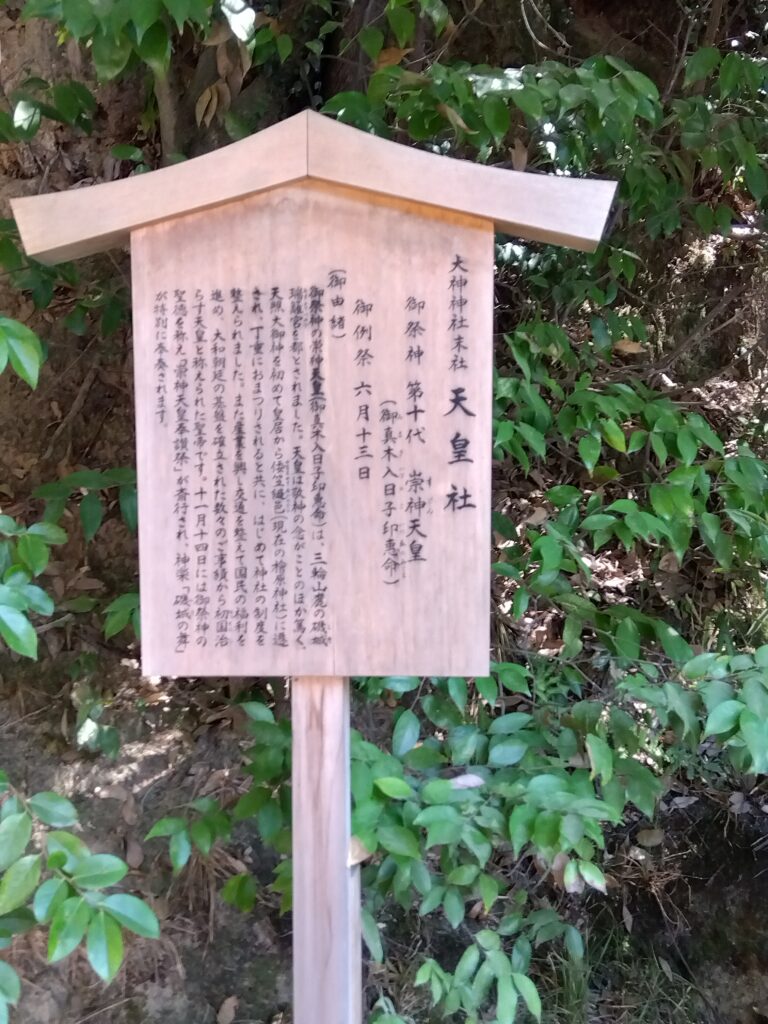 大神神社末社 天皇社
御祭神 第十代 崇神天皇
(御真木入日子印恵命)
御例祭 六月十三日
(御由緒)
御祭神の崇神天皇(御真木入日子印恵命)は、三輪山麓の磯城
瑞籬宮を都とされました。天皇は敬神の念がことのほか篤く、
天照大御神を初めて皇居から倭笠縫邑(現在の檜原神社)に遷
され、丁重におまつりされると共に、はじめて神社の制度を
整えられました。また産業を興し交通を整えて国民の福利を
進め、大和朝廷の基盤を確立された数々のご事績から初国治
らす天皇と称えられた聖帝です。十一月十四日には御祭神の
聖徳を称え「崇神天皇奉讃祭」が斎行され、神楽「磯城の舞」
が特別に奉奏されます。